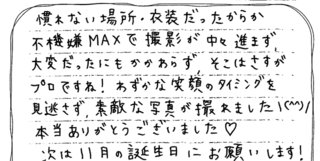 慣れない場所・衣装だったからか
不機嫌MAXで撮影が中々進まず、
大変だったにもかかわらず、そこはさすが
プロですね!わずかな笑顔のタイミングを
見逃さず、素敵な写真が撮れました\(^^)/
本当ありがとうございました♡
次は11月の誕生日にお願いします!